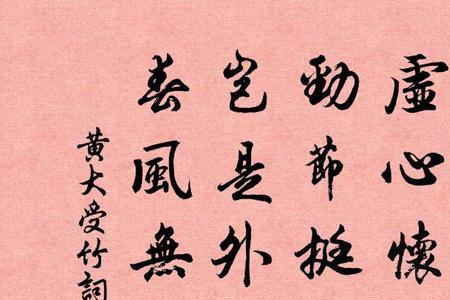 虛心懷
勁節挺
豈是外
春風無
黄大受竹詞